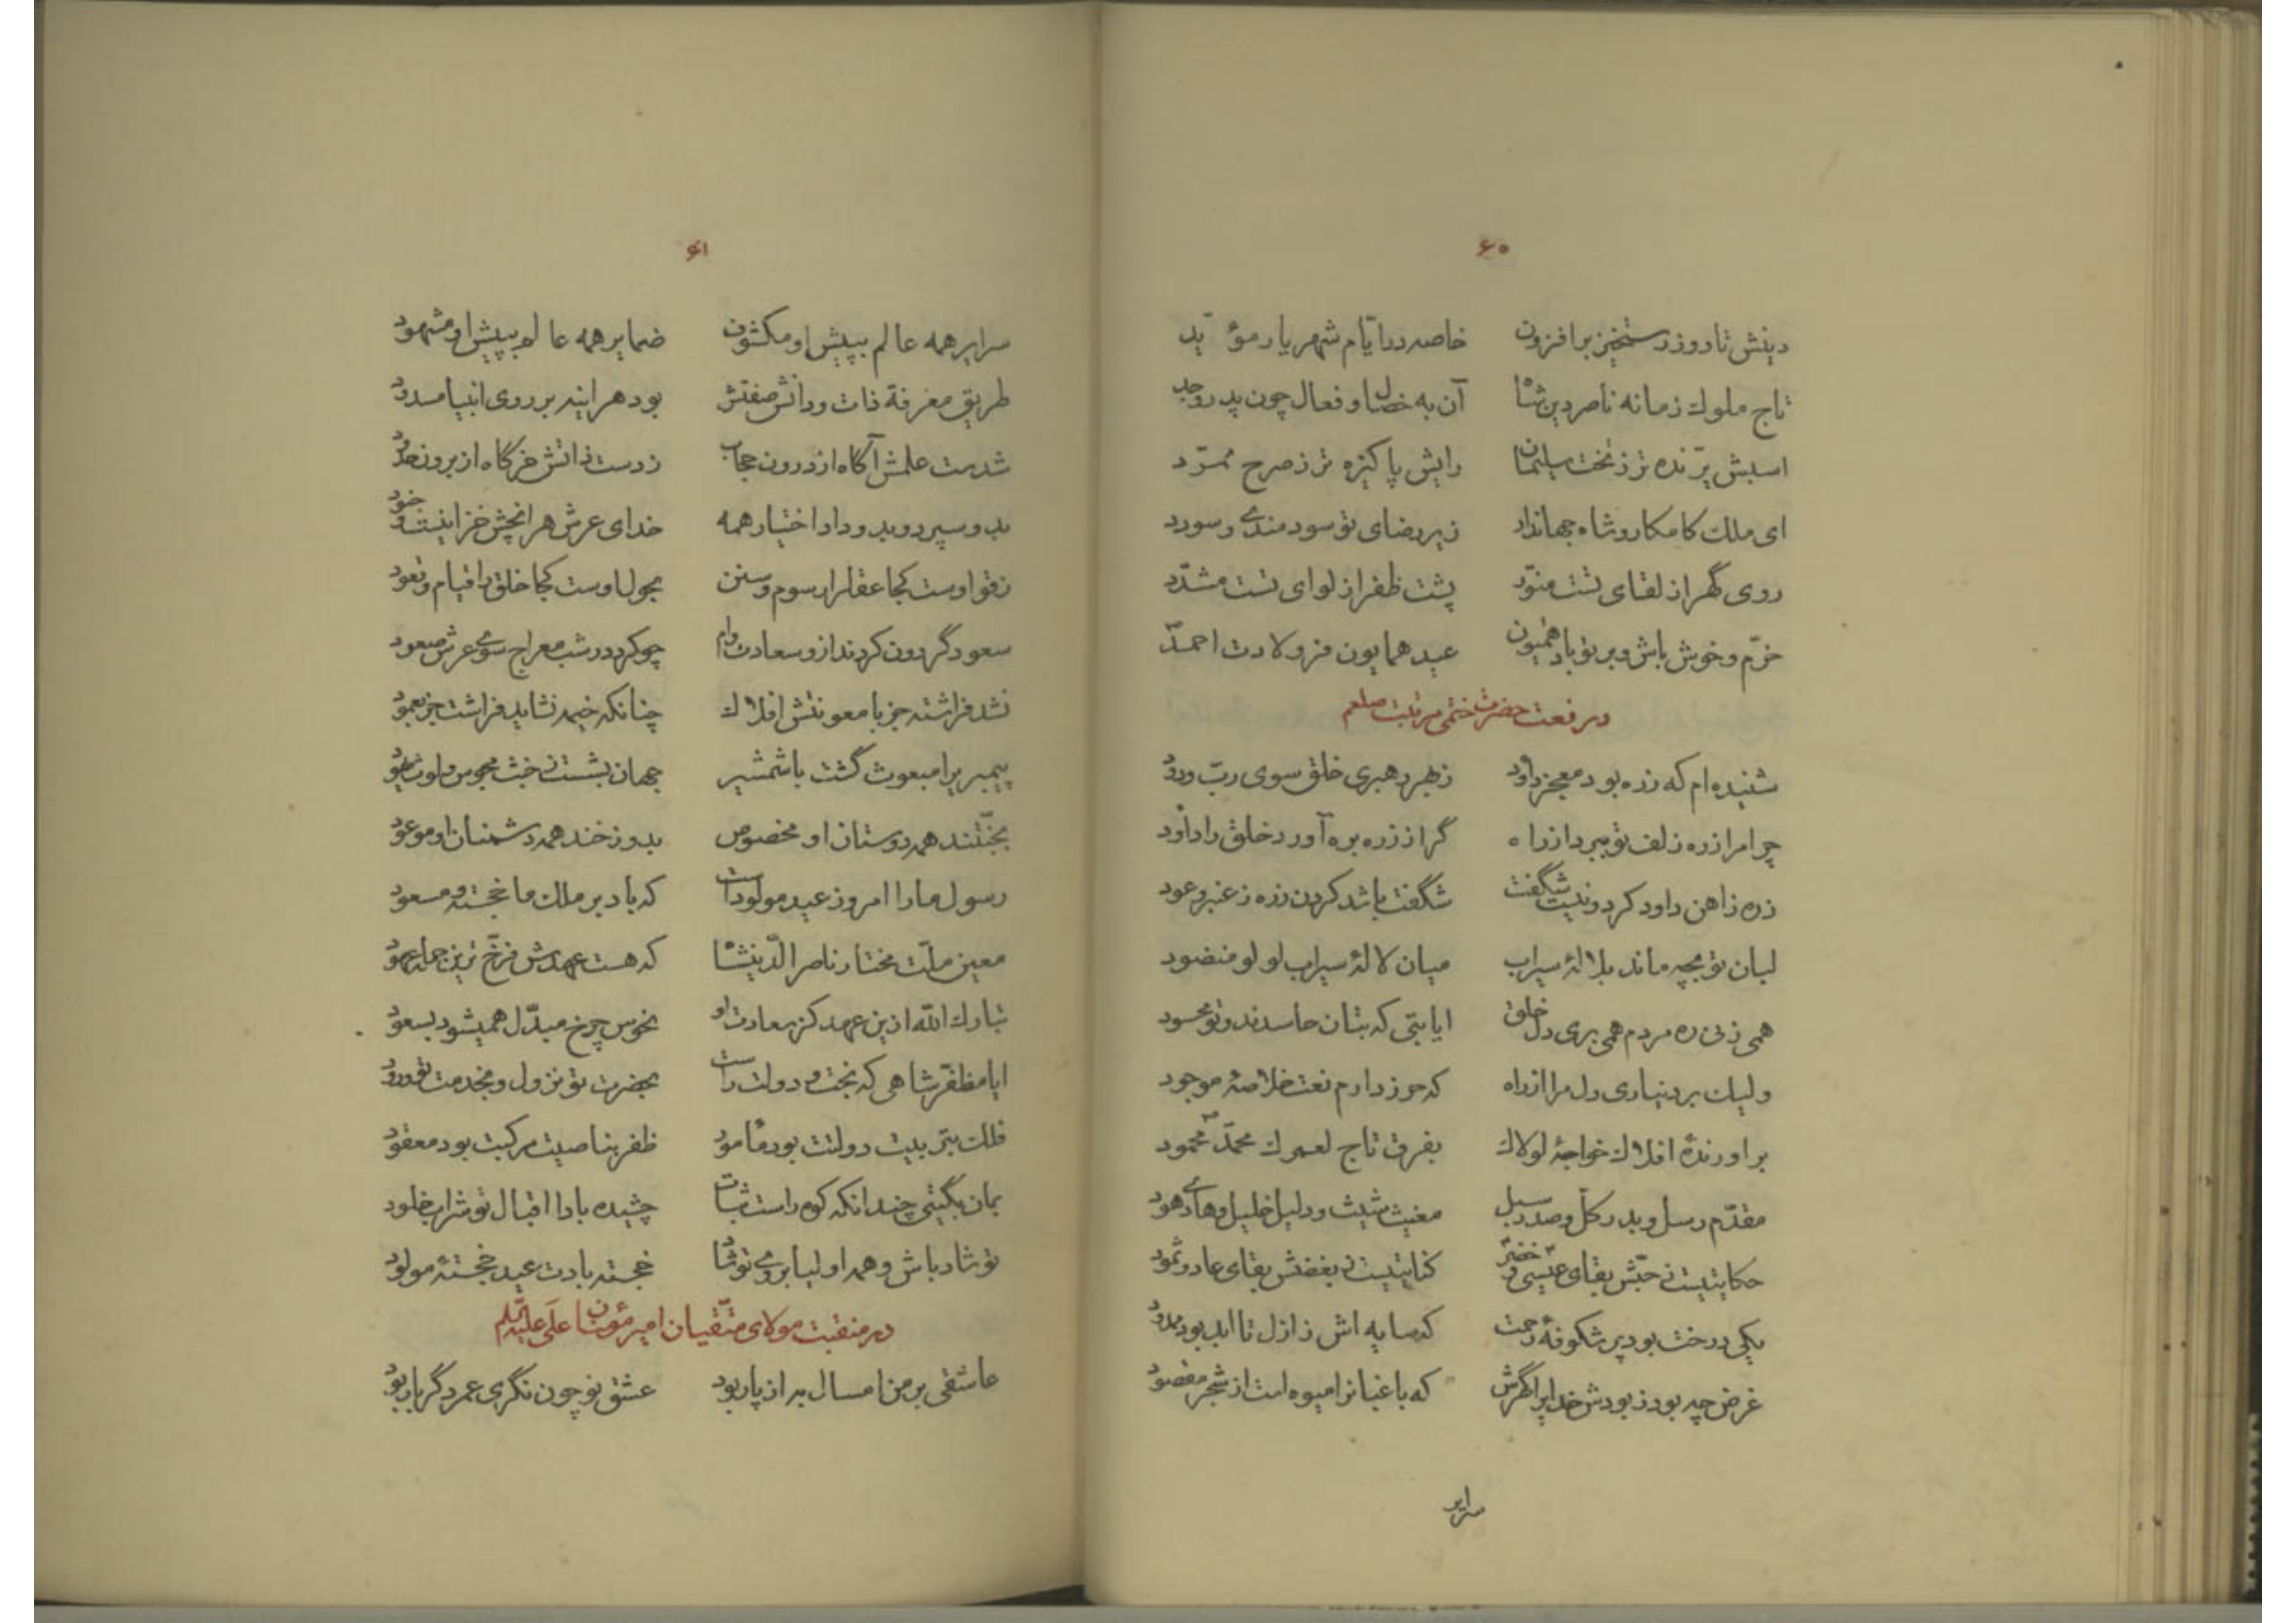 ۶۰
دینش تا روز رستخیز برافزون خاصه در ایّام شهریار مؤیّد
تاج ملوك زمانه ناصر دین شاه آن به خصال و فعال چون پدر و جد
اسبش پرّنده تر ز تخت سلیمان رایش پاکیزه تر ز صرح ممرّد
ای ملك کامکار و شاه جهاندار زیر رضای تو سودمندی و سودد
روی گهر از لقای تست منوّر پشت ظفر از لوای تست مشدّد
خرّم و خوش باش و بر تو باد همیون عید همایون فر ولادت احمد
در نعت حضرت ختمی مرتبت صلعم
شنیده ام که زره بود معجز داود ز بهر رهبری خلق سوی ربّ ودود
چرا مرا زره زلف تو ببرد از راه گر از زره بره آورد خلق را داود
زره ز اهن داود کرد و نیست شگفت شگفت باشد کردن زره ز عنبر و عود
لبان تو بچه ماند بلالهٔ سیراب میان لالهٔ سیراب لولو منضود
همی زنی ره مردم همی بری دل خلق ایا بتی که بتان حاسدند و تو محسود
ولیك برد نیاری دل مرا از راه که حرز دارم نعت خلاصهٔ موجود
براورندهٔ افلاك خواجهٔ لولاك بفرق تاج لعمرك محمّد محمود
مقدّم رسل و بدر کل و صدر سبل مغیث شیث و دلیل خلیل و هادی هود
حکایتیست ز حبّش بقای عیسی و خضر کنایتیست ز بغضش بقای عاد و ثمود
یکی درخت بود پر شکوفهٔ رحمت که سایه اش ز ازل تا ابد بود ممدود
غرض چه بود ز بودش خدایرا گرش که باغبانرا میوه است از شجر مقصود
سرایر
۶۱
سرایر همه عالم بپیش او مکشوف ضمایر همه عالم بپیش او مشهود
طریق معرفة ذات و دانش صفتش بود هراینه بر روی انبیا مسدود
شدست علمش آگاه از درون حجاب زدست ذاتش خرگاه از برون حدود
بدو سپرد و بدو داد اختیار همه خدای عرش هر انچش خزاینست و جنود
ز قول اوست کجا عقلرا رسوم و سنن بحول اوست کجا خلق را قیام و قعود
سعود گردون کردند ازو سعادت وام چو کرد در شب معراج سوی عرش صعود
نشد فراشته جز با معونتش افلاك چنانکه خیمه نشاید فراشت جز بعمود
پیمبر برا مبعوث گشت با شمشیر جهان بشست ز خبث مجوس و لوث یهود
بجنّتند همه دوستان او مخصوص بدوزخند همه دشمنان او موعود
رسول ما را امروز عید مولودست که باد بر ملك ما خجسته و مسعود
معین ملّت مختار ناصر الدّینشاه که هست عهدش فرّخ ترین جمله عهود
تبارك الله ازین عهد کز سعادت او نحوس چرخ مبدّل همیشود بسعود
ایا مظفّر شاهی که بخت و دولت راست بحضرت تو نزول و بخدمت تو ورود
فلك بتربیت دولتت بود مامور ظفر بناصیت مرکبت بود معقود
بمان بگیتی چندانکه کوه راست ثبات چشیده بادا اقبال تو شراب خلود
تو شاد باش و همه اولیا بروی تو شاد خجسته بادت عید خجستهٔ مولود
در منقبت مولای متّقیان امیر مؤمنان علی علیه السّلم
عاشقی بر من امسال به از پار بود عشق نو چون نگری عمر دگر بار بود